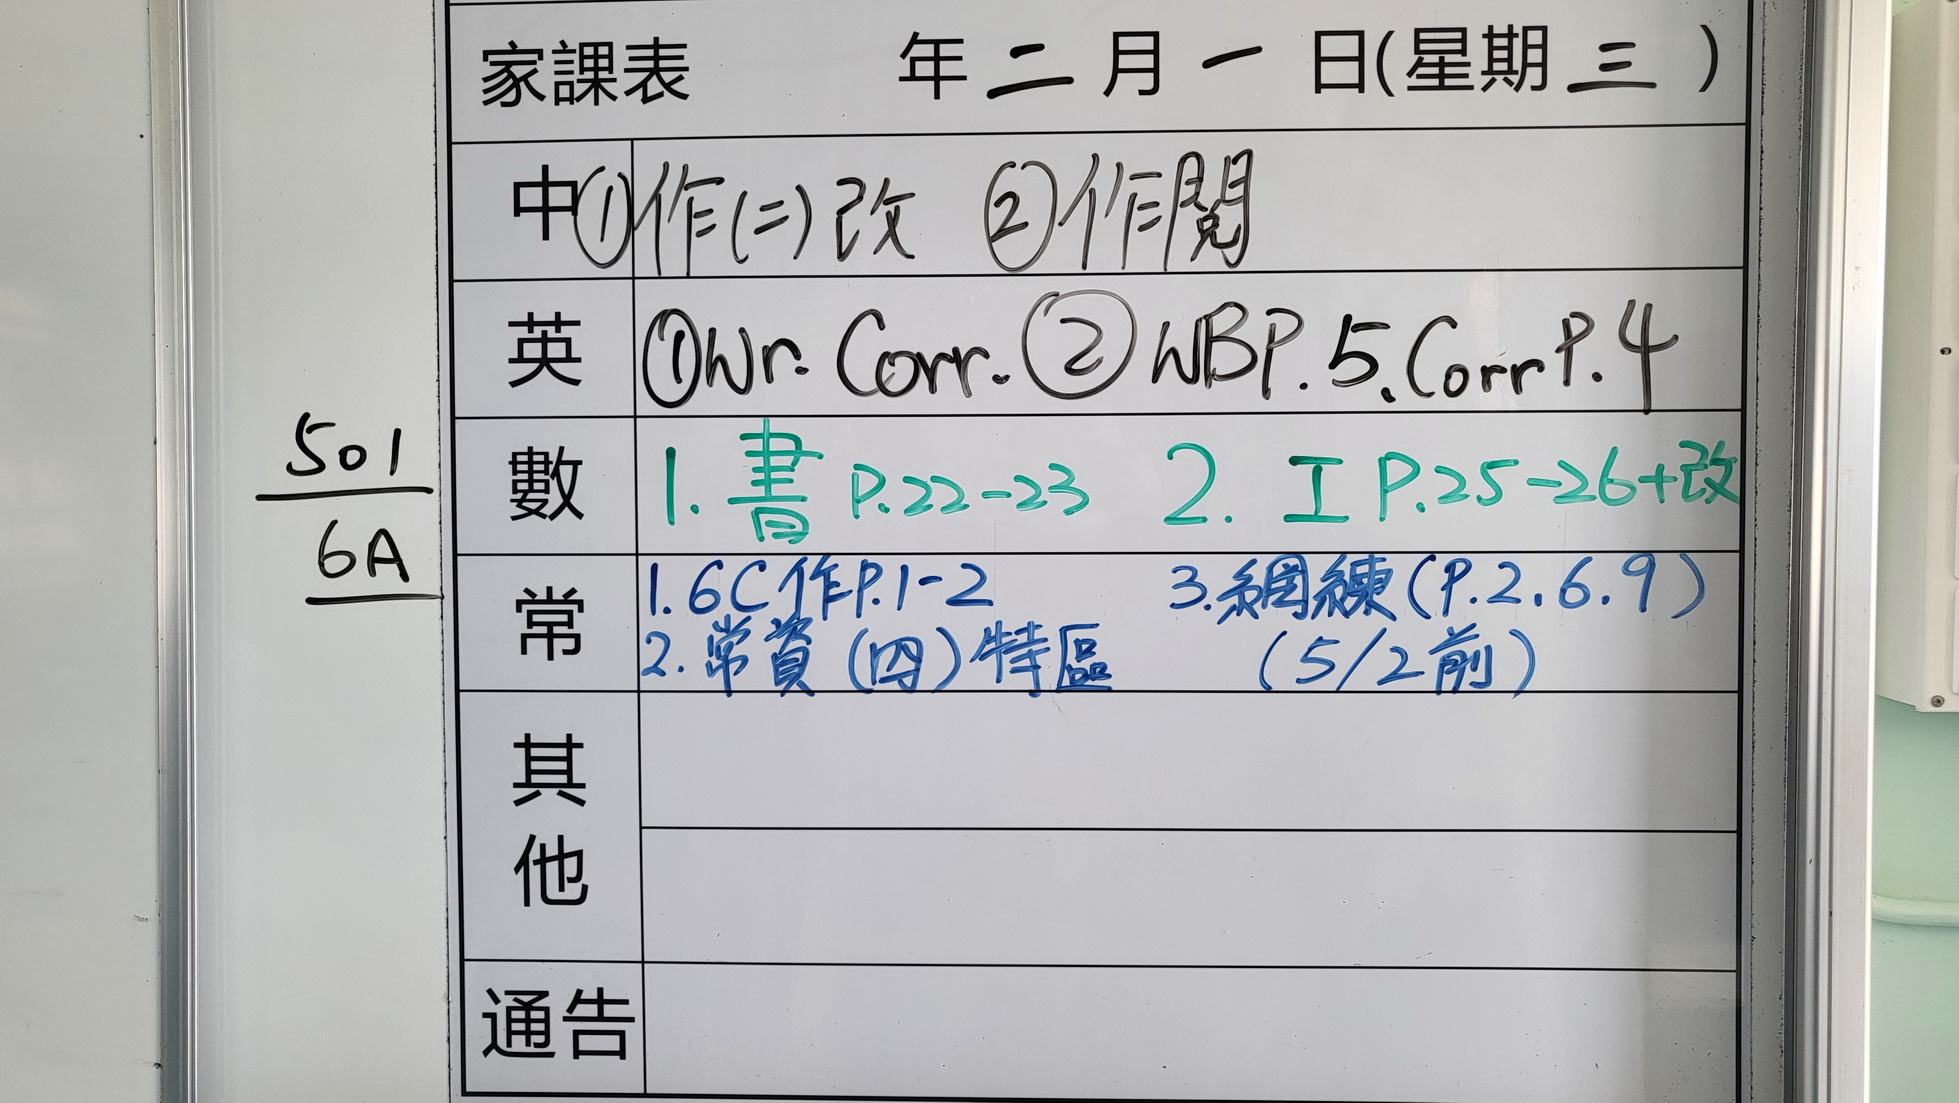 家課表 年二月一日(星期三)
中 ①作(二)改 ②作閱
英 ①Wr. Corr. ②WBP.5. Corr P.4
501
數 1. 書 P.22-23 2. 工 P.25-26+改
6A
常 1. 6C作P.1-2 3. 網練(P.2.6.9)
2. 常資(四)特區 (5/2前)
其他
通告